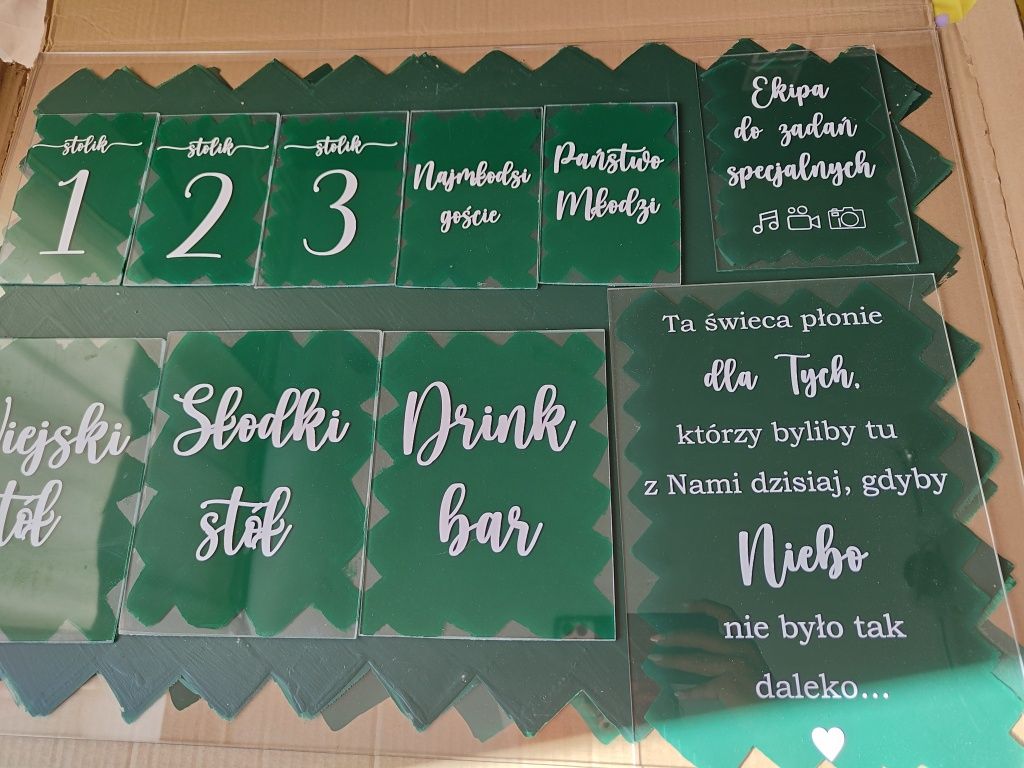 stolik
1
stolik
2
stolik
3
Najmłodsi
goście
Państwo
Młodzi
Ekipa
do zadań
specjalnych
Słodki
stół
Drink
bar
Ta świeca płonie
dla Tych,
którzy byliby tu
z Nami dzisiaj, gdyby
Niebo
nie było tak
daleko...